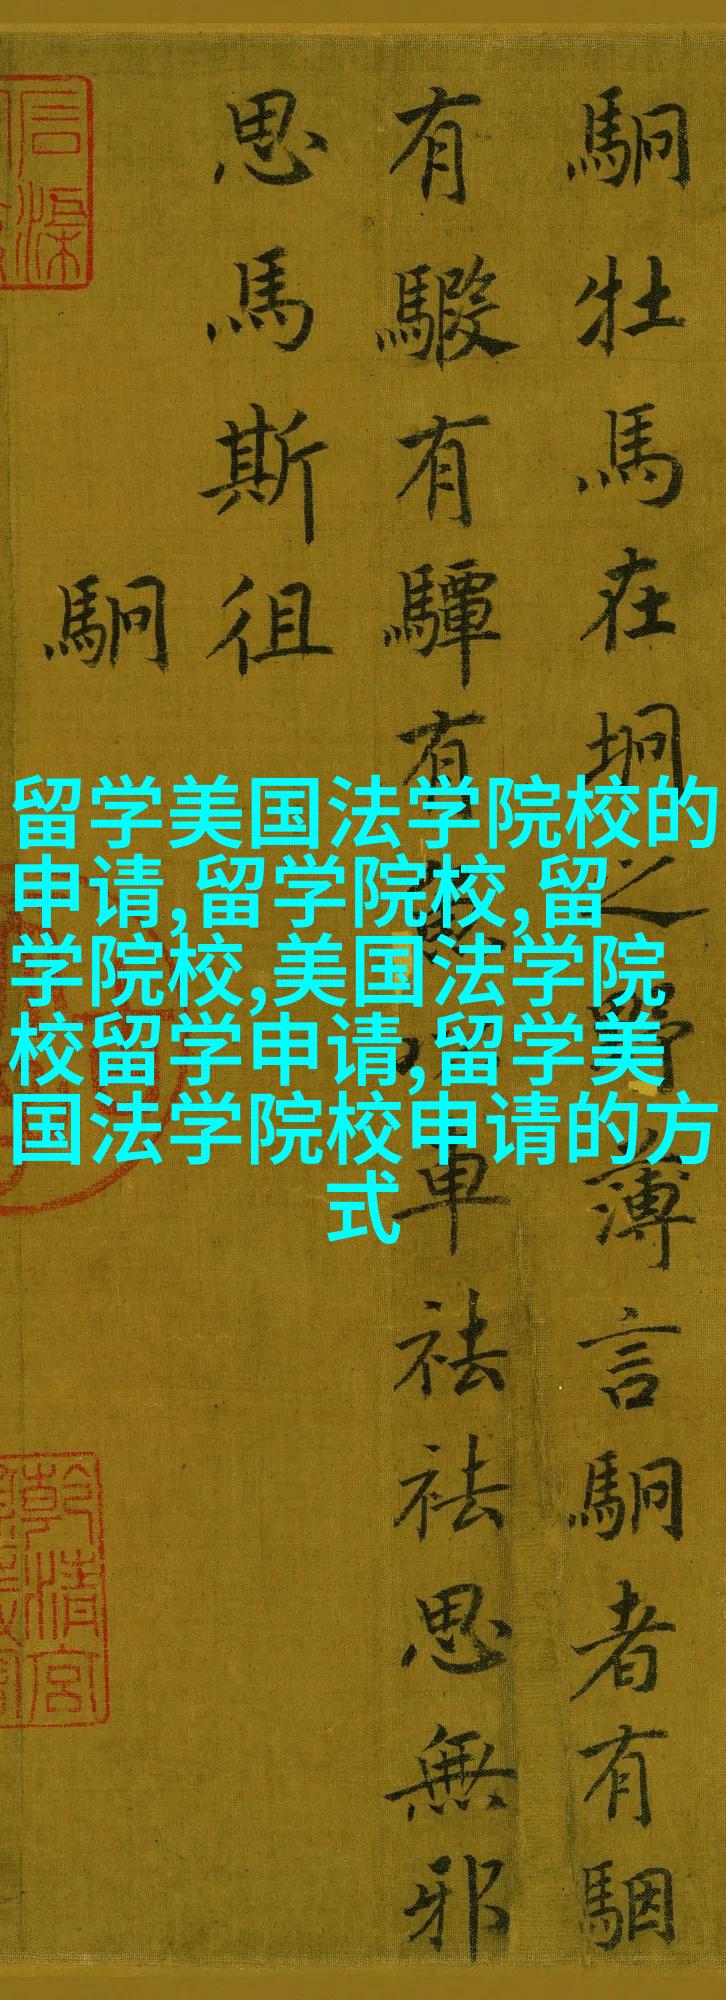 駉牡馬在坰之野薄言駉者有駰
有騢有驔有以車祛祛思無邪
思馬斯徂
駉
留学美国法学院校的
申请,留学院校,留
学院校,美国法学院
校留学申请,留学美
国法学院校申请的方
式
乾清宮